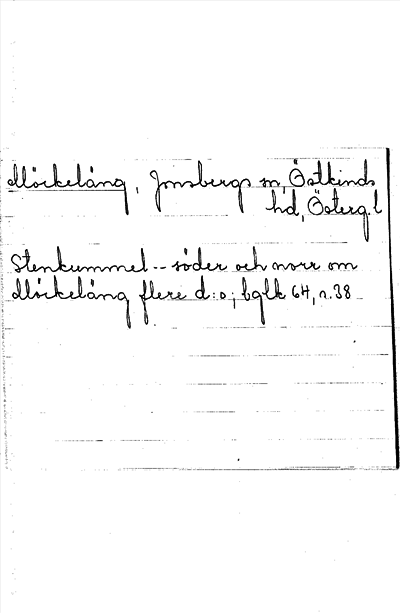 Mörkelång, Jonsbergs sn, Östkinds
hd, Österg. l
Stenkummel -- söder och norr om
Mörkelång flere d:o; bglk 64, n. 38